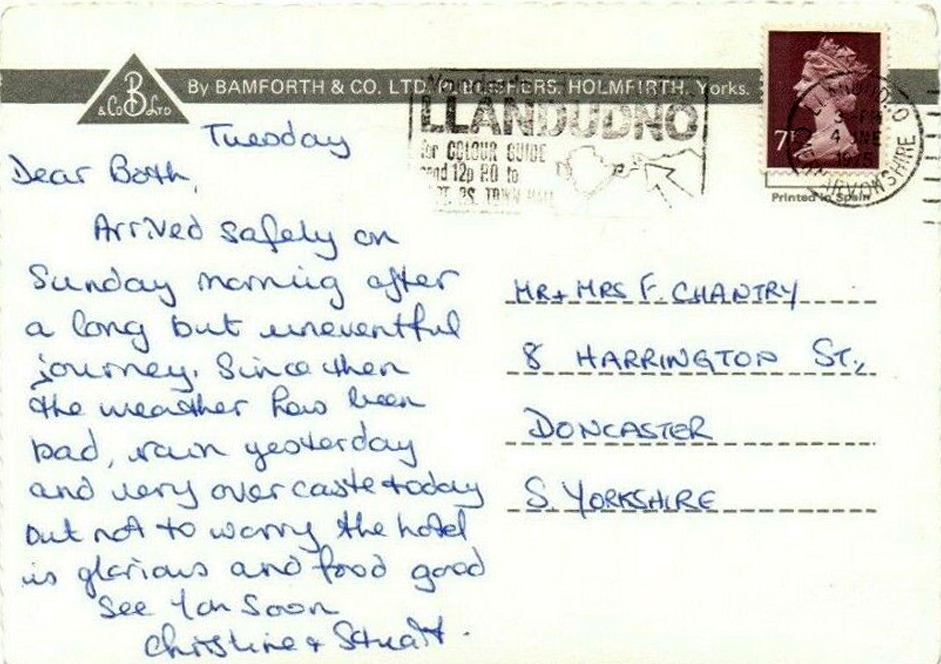 B
& Co LTD
By BAMFORTH & CO. LTD. PUBLISHERS, HOLMFIRTH, Yorks.
LLANDUDNO
for COLOUR GUIDE
send 12p PO to
TOWN HALL
7P
LLANDUDNO
3 - PM
4 JNE
1975
CAERNARVONSHIRE
Printed in Spain
Tuesday
Dear Both,
Arrived safely on
Sunday morning after
a long but uneventful
journey. Since then
the weather has been
bad, rain yesterday
and very over caste today
but not to worry the hotel
is glorious and food good
See You Soon
Christine + Stuart.
MR + MRS F. CHANTRY
8 HARRINGTON ST.,
DONCASTER
S. YORKSHIRE